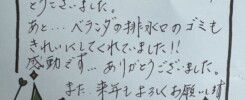 とうございました。
あと…ベランダの排水口のゴミも
きれいにしてくれていました!!
感動です…ありがとうございました。
また来年もよろしくお願いします